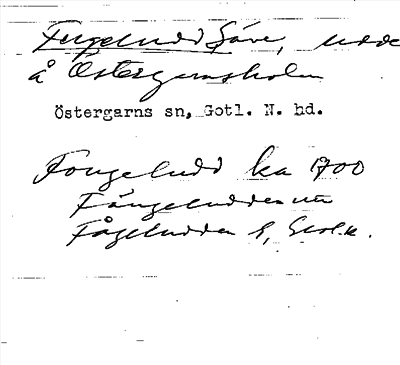 Fugeludd Säve, udde
å Östergarnsholm
Östergarns sn, Gotl. N. hd.
Fougeludd ka 1700
Fångeludden
Fågeludden